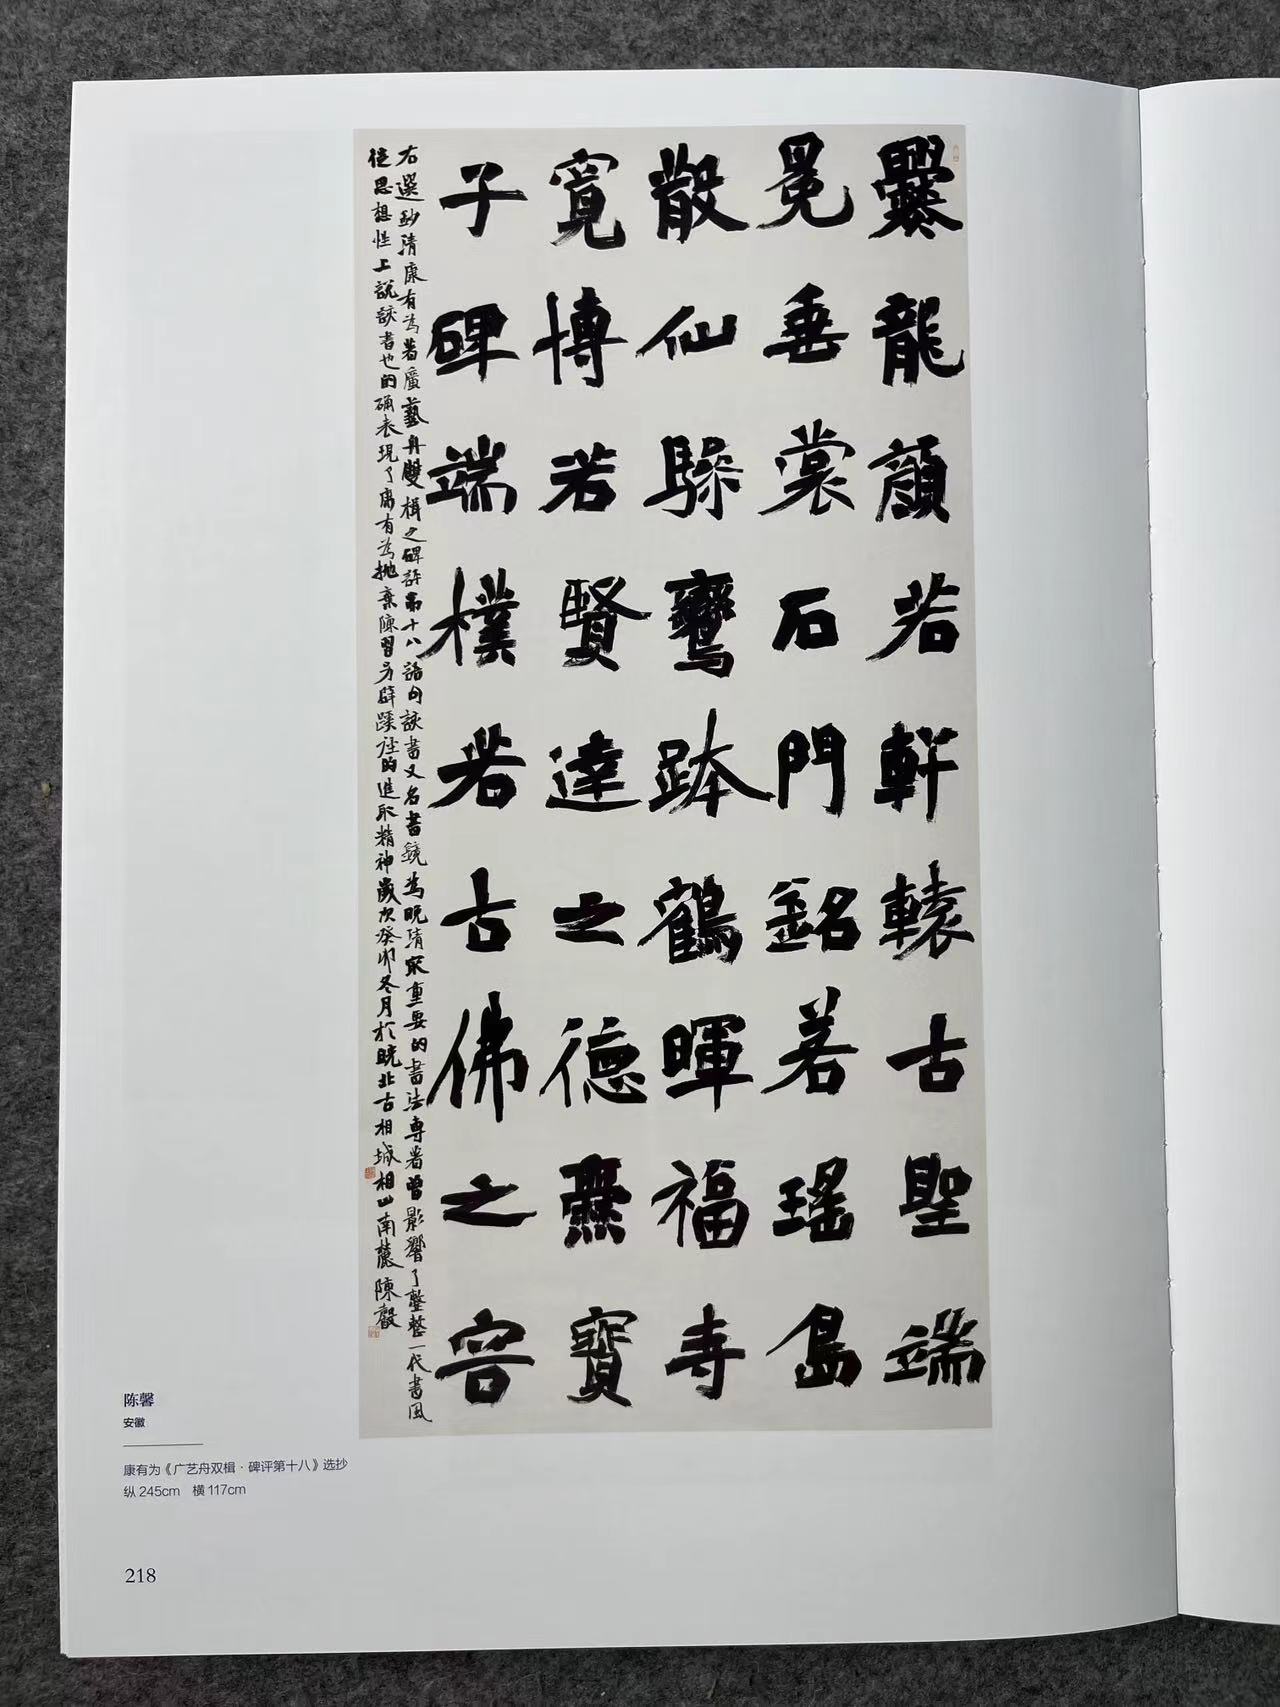 爨龍顔若軒轅古聖端
冕垂裳石門銘若瑤島
散仙驂鸞跨鶴暉福寺
寬博若賢達之德爨寶
子碑端樸若古佛之容
右選鈔清康有為著廣藝舟雙楫之碑評第十八語句該書又名書鏡為晚清最重要的書法專著曾影響了整整一代書風
從思想性上說該書也的确表現了康有為抛棄陳習另辟蹊徑的進取精神歲次癸卯冬月於皖北古相城相山南麓陳馨
陈馨
安徽
康有为《广艺舟双楫·碑评第十八》选抄
纵 245cm 横 117cm
218